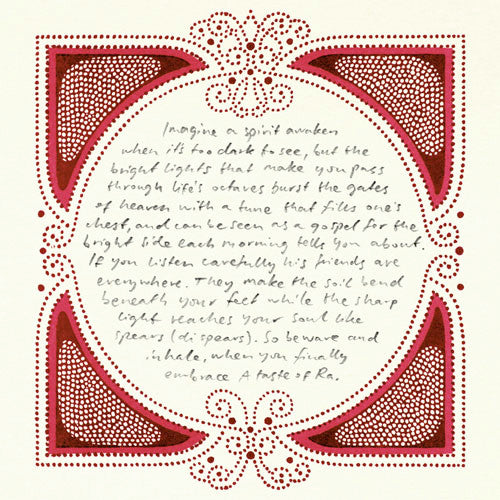 Imagine a spirit awaken
when it's too dark to see, but the
bright lights that make you pass
through life's octaves burst the gates
of heaven with a tune that fills one's
chest, and can be seen as a gospel for the
bright side each morning tells you about.
If you listen carefully his friends are
everywhere. They make the soil bend
beneath your feet while the sharp
light reaches your soul like
spears (di spears). So beware and
inhale, when you finally
embrace A taste of Ra.